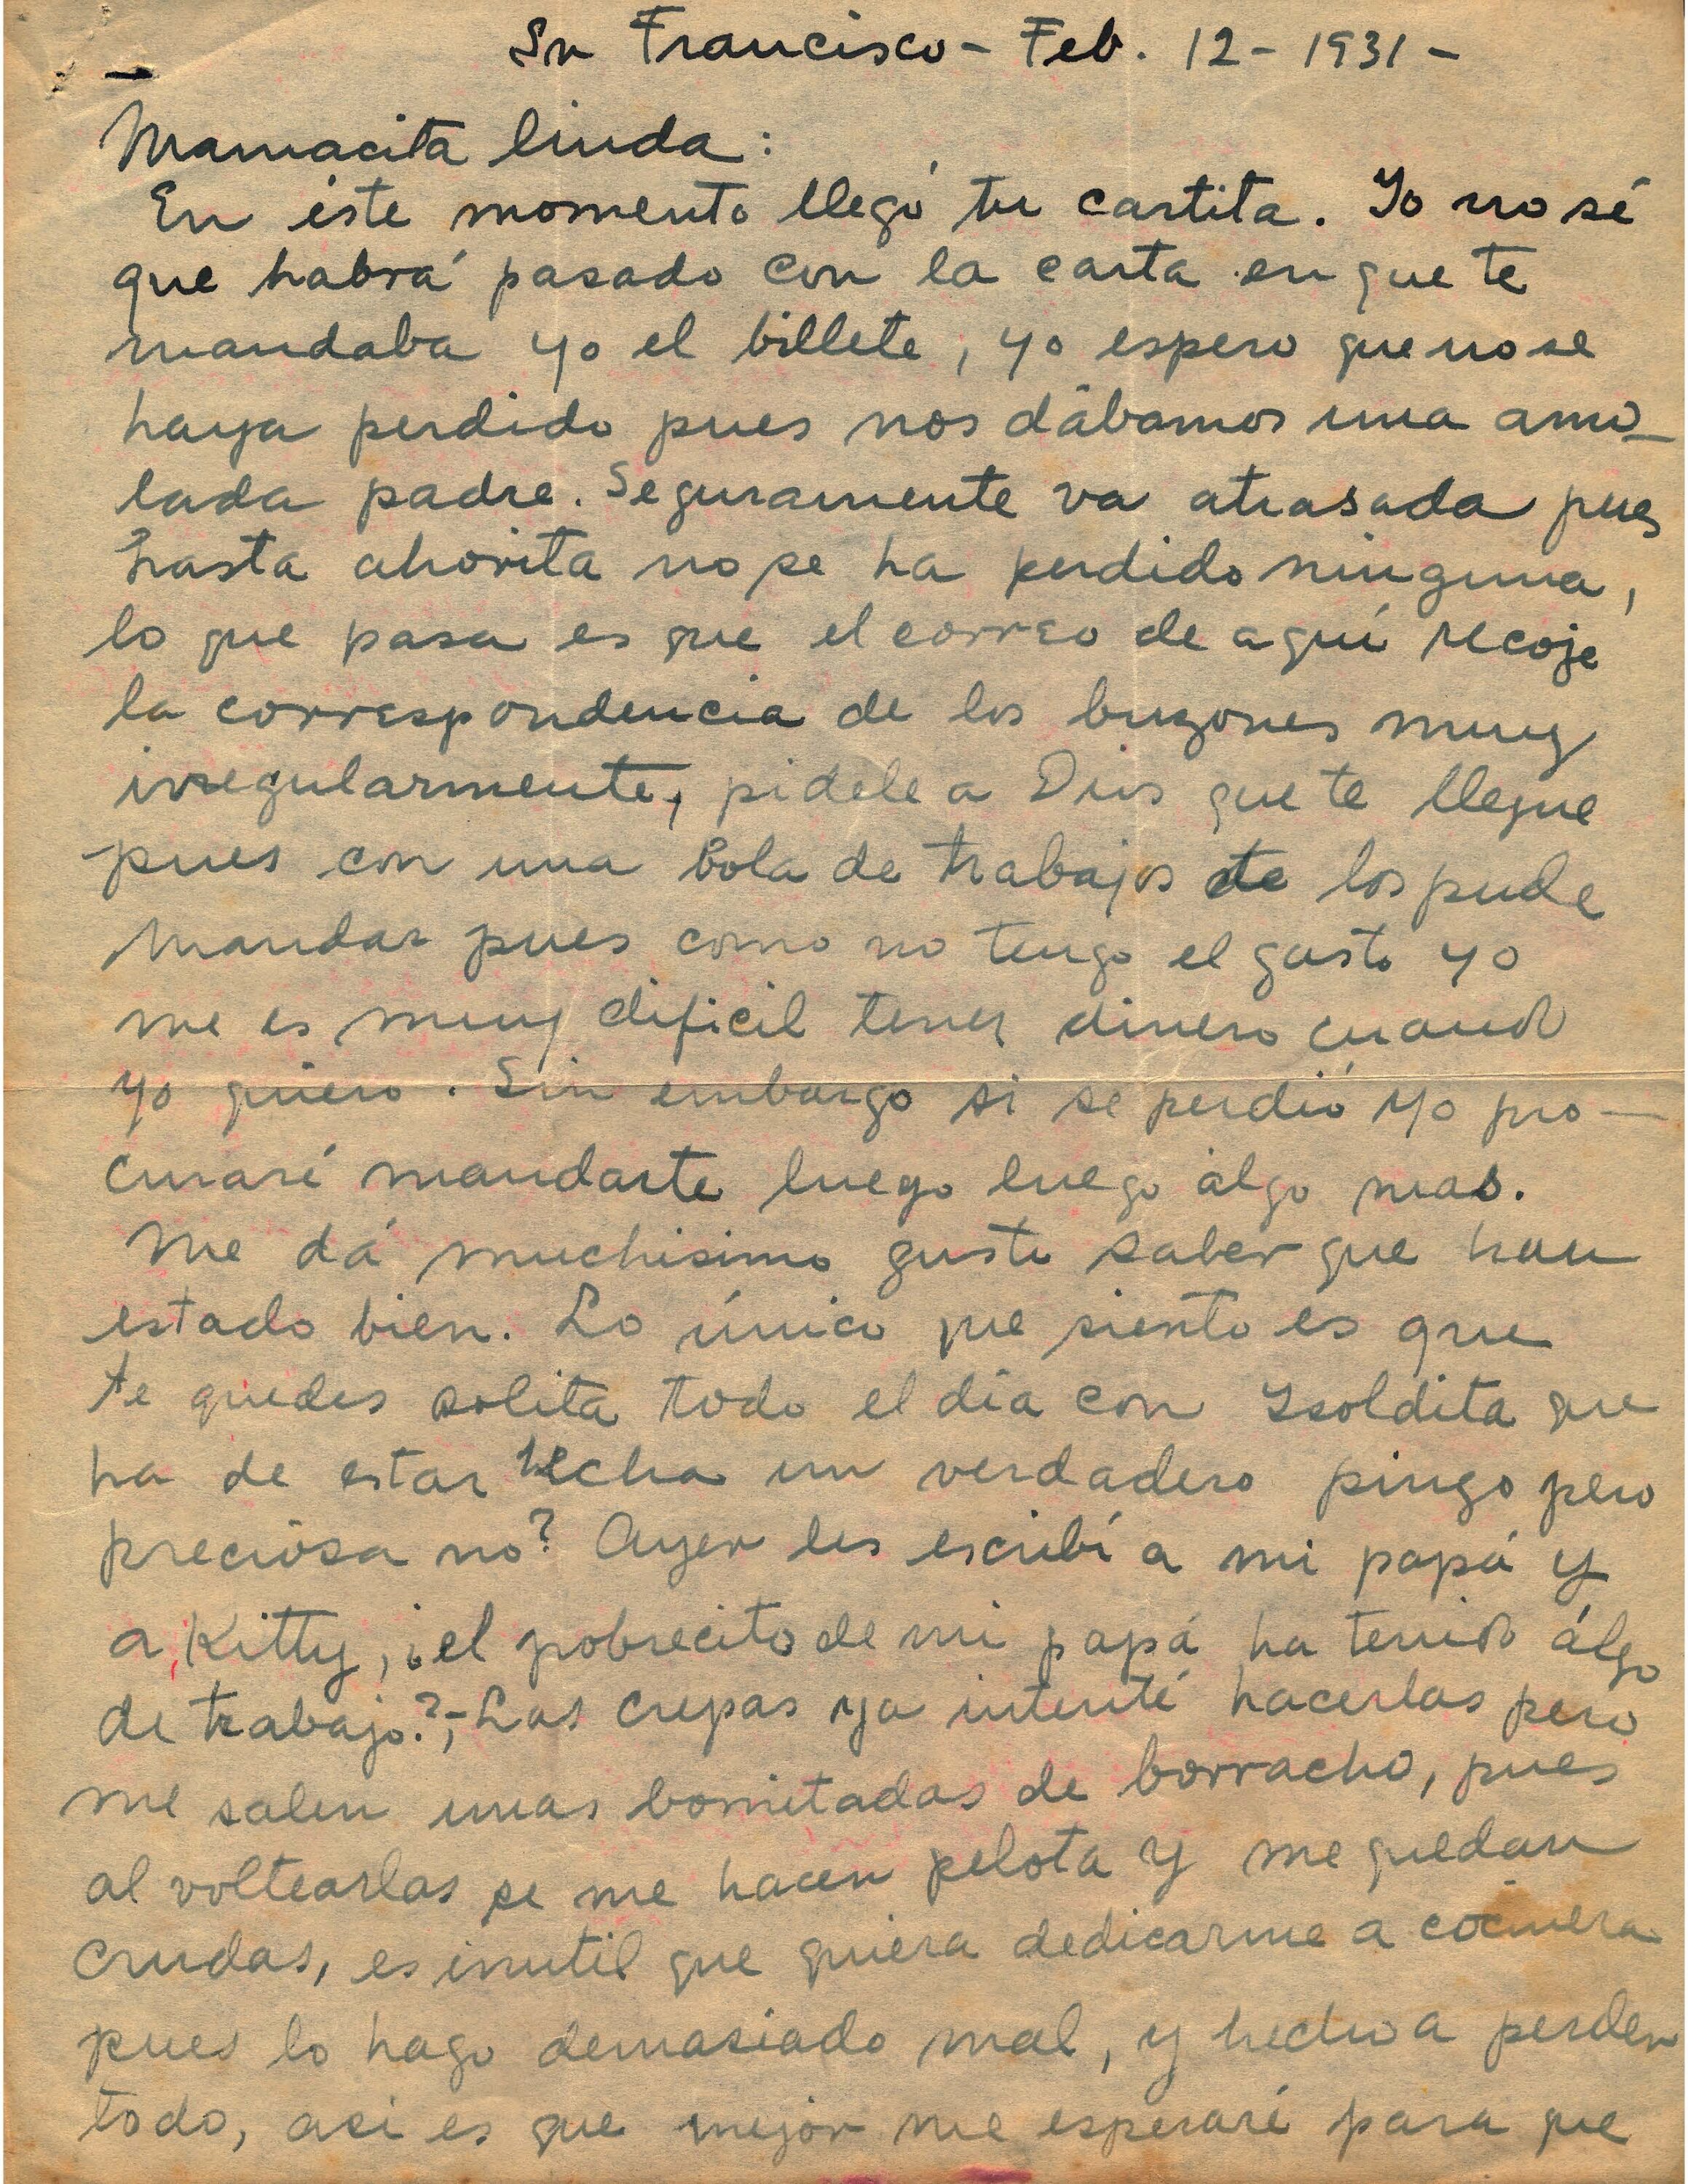 Sn Francisco - Feb. 12 - 1931 -
Mamacita linda:
En éste momento llegó tu cartita. Yo no sé
que habrá pasado con la carta en que te
mandaba yo el billete, yo espero que no se
haya perdido pues nos dábamos una amo-
lada padre. Seguramente va atrasada pues
hasta ahorita no se ha perdido ninguna,
lo que pasa es que el correo de aquí recoje
la correspondencia de los buzones muy
irregularmente, pidele a Dios que te llegue
pues con una bola de trabajos te los pude
mandar pues como no tengo el gasto yo
me es muy dificil tener dinero cuando
yo quiero. Sin embargo si se perdió yo pro-
curaré mandarte luego luego algo mas.
Me dá muchisimo gusto saber que han
estado bien. Lo único que siento es que
te quedes solita todo el dia con Ysoldita que
ha de estar hecha un verdadero pingo pero
preciosa no? Ayer les escribí a mi papá y
a Kitty, ¿el pobrecito de mi papá ha tenido álgo
de trabajo?,- Las crepas ya intenté hacerlas pero
me salen unas bomitadas de borracho, pues
al voltearlas se me hacen pelota y me quedan
crudas, es inutil que quiera dedicarme a cocinera
pues lo hago demasiado mal, y hecho a perder
todo, asi es que mejor me esperaré para que